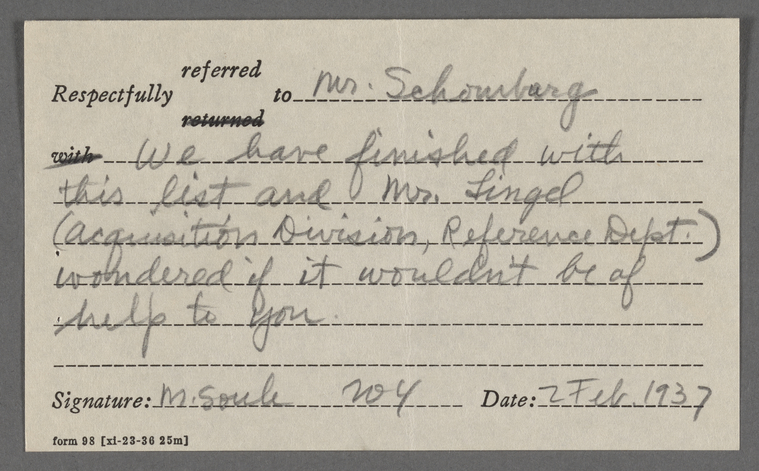 Respectfully referred returned to Mr. Schomburg
with We have finished with
this list and Mr. Lingel
(Acquisition Division, Reference Dept.)
wondered if it wouldn't be of
help to you.
Signature: M. Soule 204 Date: 2 Feb. 1937
form 98 [xi-23-36 25m]